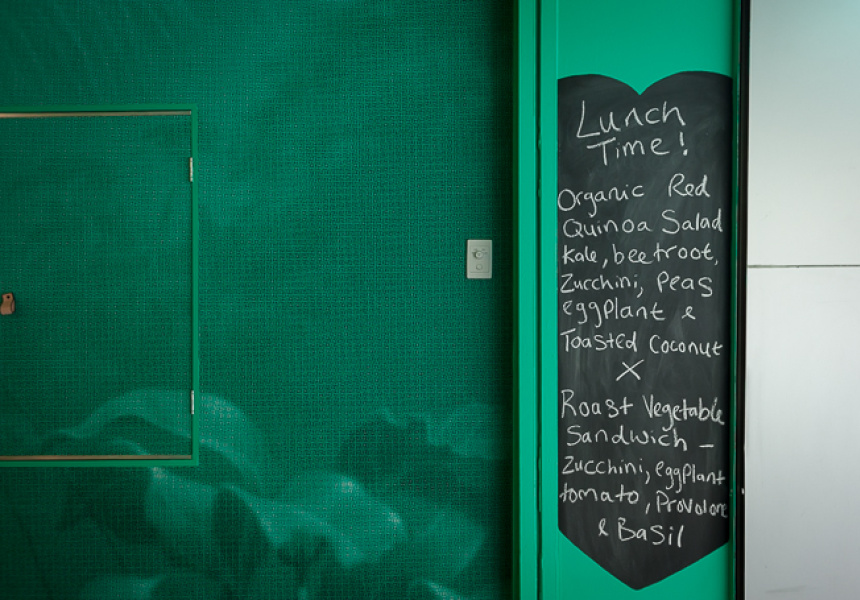 Lunch
Time!
Organic Red
Quinoa Salad
Kale, beetroot,
Zucchini, Peas
eggplant &
Toasted Coconut
X
Roast Vegetable
Sandwich -
Zucchini, eggplant
tomato, Provolone
& Basil